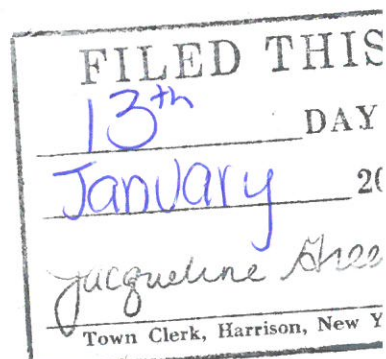 FILED THIS
13th DAY
January 20
Jacqueline Gree
Town Clerk, Harrison, New Y